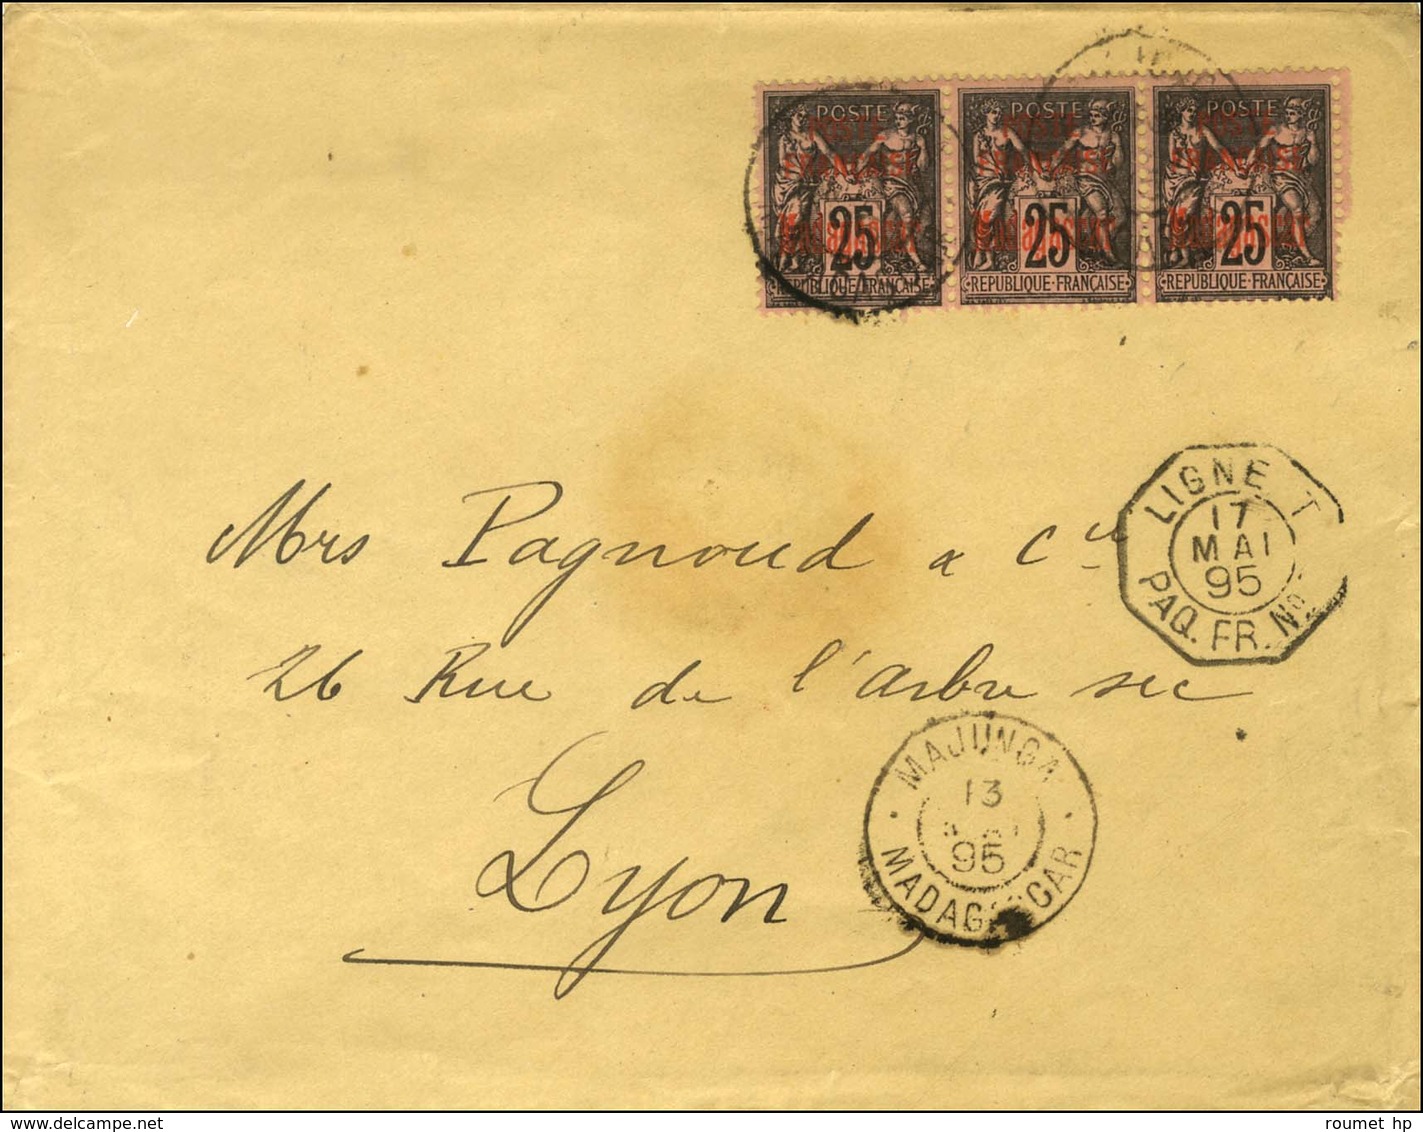 POSTE POSTE POSTE
POSTE POSTE POSTE
FRANÇAISE FRANÇAISE FRANÇAISE
Madagascar Madagascar Madagascar
25 25 25
REPUBLIQUE·FRANÇAISE REPUBLIQUE·FRANÇAISE REPUBLIQUE·FRANÇAISE
LIGNE T
17
MAI
95
PAQ. FR. No
Mrs Pagnoud & Cie
26 Rue de l'arbre sec
Lyon
MAJUNGA
13
MAI
95
MADAGASCAR
delcampe.net
roumet hp